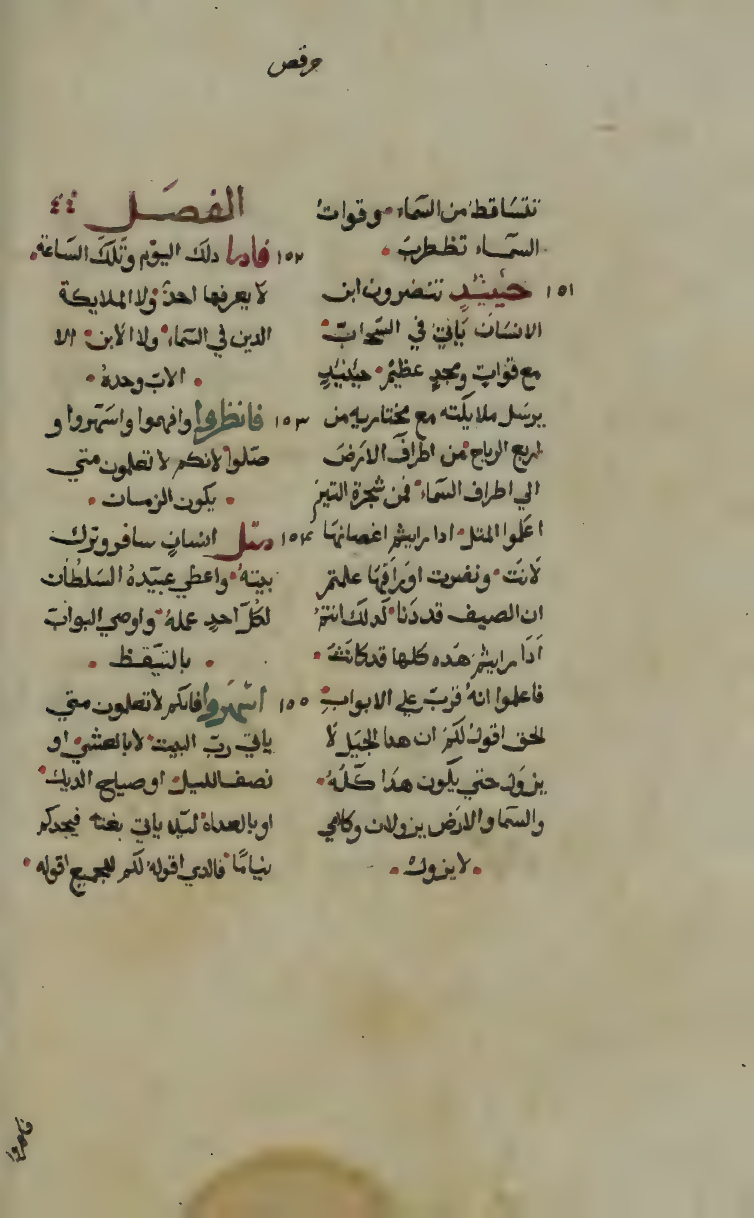 مرقص
تتساقط من السماء وقوات
السماء تظطرب
١٥١ حينيد تنضرون ابن
الانسان ياتي في السحاب
مع قوات ومجد عظيم حينيد
يرسل ملايكته مع مختاريه من
اربع الرياح من اطراف الارض
الي اطراف السماء فمن شجرة التين
اعلموا المتل ادا رايتم اغصانها
لانت ونضرت اوراقها علمتم
ان الصيف قد دنا كدلك انتم
ادا رايتم هده كلها قد كانت
فاعلموا انه قرب علي الابواب
الحق اقول لكم ان هدا الجيل لا
يزول حتي يكون هدا كله
والسما والارض يزولان وكلامي
لا يزول
الفصل ٤٤
١٥٢ فاما دلك اليوم وتلك الساعة
لا يعرفها احد ولا الملايكة
الدين في السماء ولا الابن الا
الاب وحده
١٥٣ فانظروا وافهموا واسهروا و
صلوا لانكم لا تعلمون متي
يكون الزمان
١٥٤ متل انسان سافر وترك
بيته واعطي عبيده السلطان
لكل احد عمله واوصي البواب
بالتيقظ
١٥٥ اسهروا فانكم لا تعلمون متي
ياتي رب البيت لا بالعشي او
نصف الليل او صياح الديك
او بالغداه ليلا ياتي بغته فيجدكم
نياما فالدي اقوله لكم للجميع اقوله